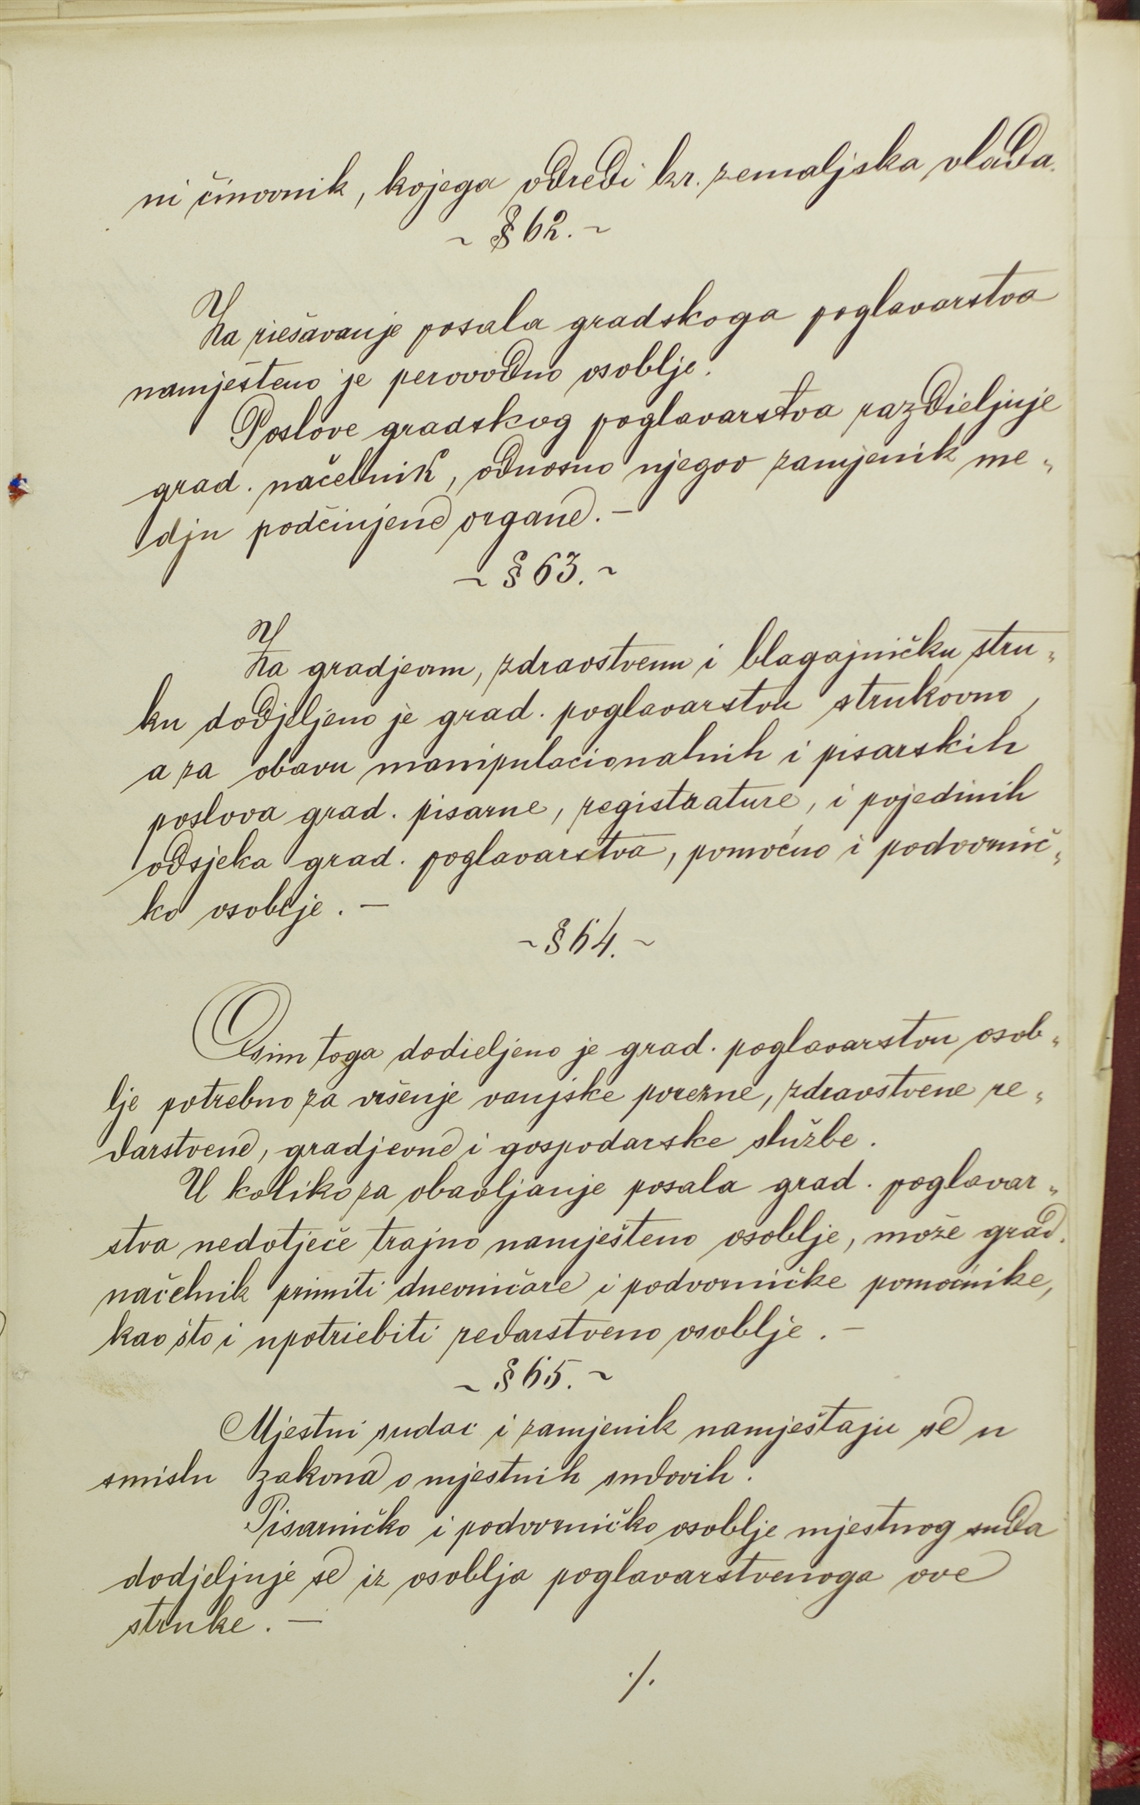 ni činovnik, kojega odredi kr. zemaljska vlada.
~ § 62. ~
Za riešavanje posala gradskoga poglavarstva
namješteno je perovodno osoblje.
Poslove gradskog poglavarstva razdieljuje
grad. načelnik, odnosno njegov zamjenik me„
dju podčinjene organe. –
~ § 63. ~
Za gradjevnu, zdravstvenu i blagajničku stru„
ku dodjeljeno je grad. poglavarstvu strukovno,
a za obavu manipulacionalnih i pisarskih
poslova grad. pisarne, registrature, i pojedinih
odsjeka grad. poglavarstva, pomoćno i podvornič„
ko osoblje. –
~ § 64. ~
Osim toga dodieljeno je grad. poglavarstvu osob„
lje potrebno za vršenje vanjske porezne, zdravstvene re„
darstvene, gradjevne i gospodarske službe.
U koliko za obavljanje posala grad. poglavar„
stva nedotječe trajno namješteno osoblje, može grad.
načelnik primiti dnevničare i podvorničke pomoćnike,
kao što i upotriebiti redarstveno osoblje. –
~ § 65. ~
Mjestni sudac i zamjenik namještaju se u
smislu zakona o mjestnih sudovih.
Pisarničko i podvorničko osoblje mjestnog suda
dodjeljuje se iz osoblja poglavarstvenoga ove
struke. –
./.